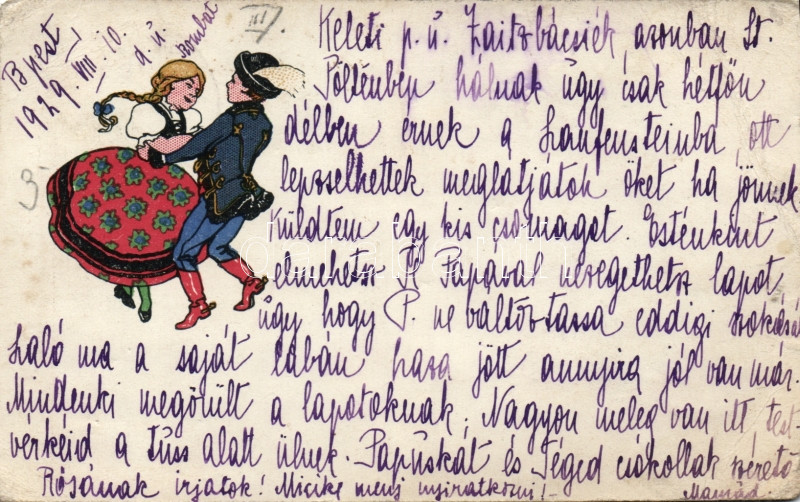 Bpest
1929. VIII. 10.
d. u.
szombat
IV.
3-
Keleti p. u. Zaitzbácsiék, azonban St.
Pöltenben hálnak úgy csak hétfőn
délben érnek a Laufensteinba, ott
meglátjátok őket ha jönnek
Küldtem egy kis csomagot. Esténként
elmehetsz Papával nézegethetsz lapot
úgy hogy P. ne változtassa eddigi szokását
Laló ma a saját lábán haza jött annyira jól van már.
Mindenki megörült a lapotoknak. Nagyon meleg van itt, test
vérkéid a tuss alatt ülnek. Papuskát és Téged csókollak szerető
Rózának írjatok! Micike menj nyiratkozni!- Mamád